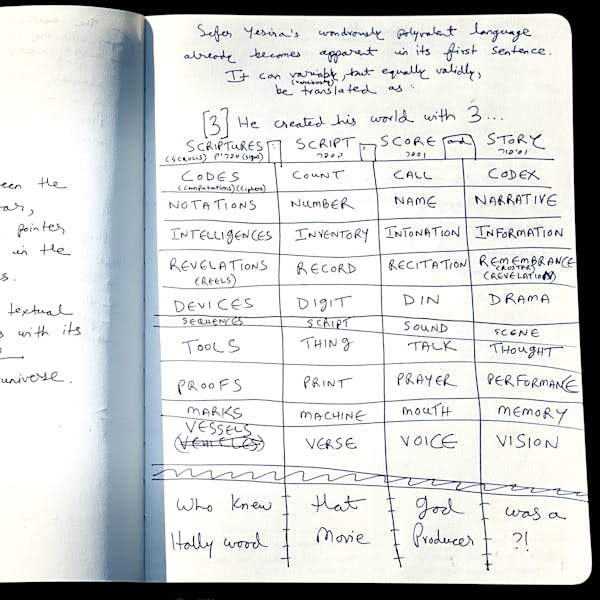 een the
ar,
pointer
in the
s.
textual
s with its
universe.
Sefer Yesira's wondrously polyvalent language
already becomes apparent in its first sentence.
It can variably, but equally validly,
(variously)
be translated as:
[3] He created his world with 3...
SCRIPTURES : SCRIPT , SCORE and STORY
(SCROLLS) ספרים (signs) בספר וספר וסיפור
CODES COUNT CALL CODEX
(Computations) (Ciphers)
NOTATIONS NUMBER NAME NARRATIVE
INTELLIGENCES INVENTORY INTONATION INFORMATION
REVELATIONS RECORD RECITATION REMEMBRANCE
(REELS) (ROSTER)
(REVELATION)
DEVICES DIGIT DIN DRAMA
SEQUENCES SCRIPT SOUND SCENE
TOOLS THING TALK THOUGHT
PROOFS PRINT PRAYER PERFORMANCE
MARKS MACHINE MOUTH MEMORY
VESSELS
(VEHICLES) VERSE VOICE VISION
Who Knew that God was a
Hollywood Movie Producer ?!